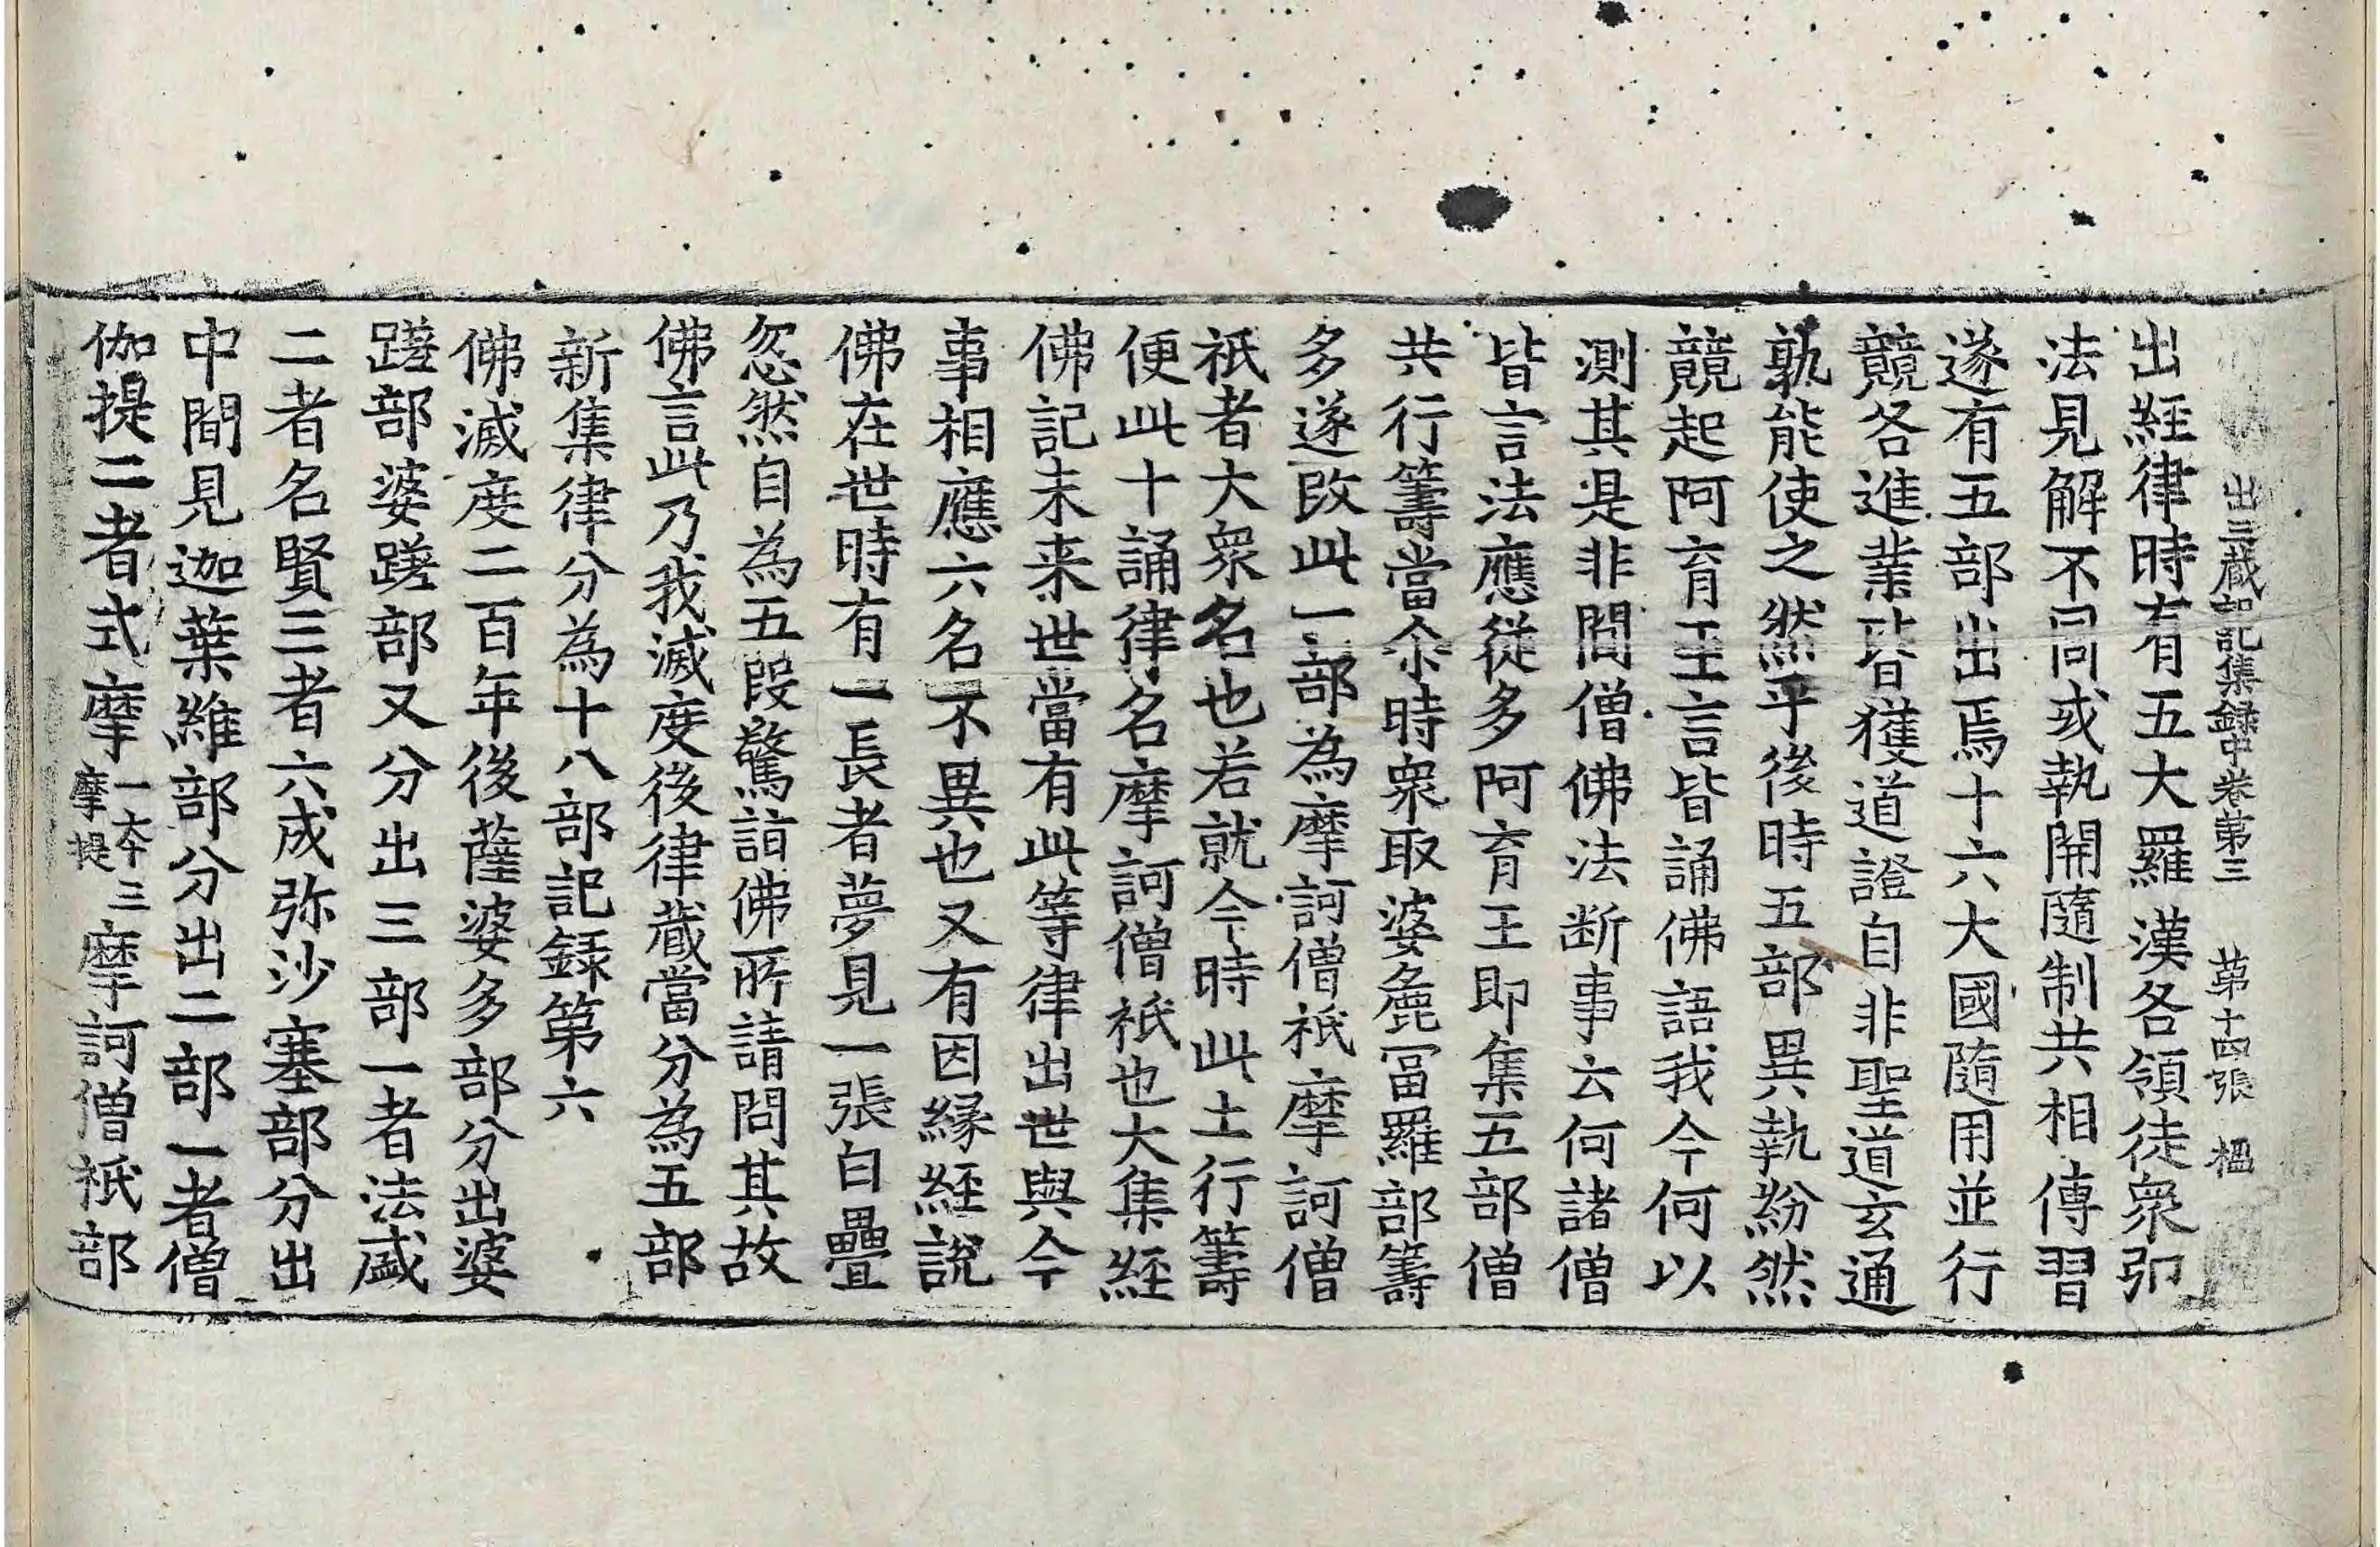 出三蔵記集録中卷第三　第十四張　楹
出經律時有五大羅漢各領徒衆弘
法見解不同或執開隨制共相傳習
遂有五部出焉十六大國隨用並行
競各進業皆獲道證自非聖道玄通
孰能使之然乎後時五部異執紛然
競起阿育王言皆誦佛語我今何以
測其是非問僧佛法断事云何諸僧
皆言法應從多阿育王即集五部僧
共行籌當尒時衆取婆麁冨羅部籌
多遂改此一部為摩訶僧祇摩訶僧
祇者大衆名也若就今時此土行籌
便此十誦律名摩訶僧祇也大集經
佛記未来世當有此等律出世與今
事相應六名不異也又有因縁經說
佛在世時有一長者夢見一張白㲲
忽然自為五段驚詣佛所請問其故
佛言此乃我滅度後律蔵當分為五部
新集律分為十八部記録第六
佛滅度二百年後薩婆多部分出婆
蹉部婆蹉部又分出三部一者法盛
二者名賢三者六成弥沙塞部分出
中間見迦葉維部分出二部一者僧
伽提二者式摩一本三摩提摩訶僧祇部